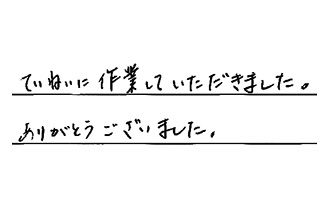 ていねいに作業していただきました。
ありがとうございました。